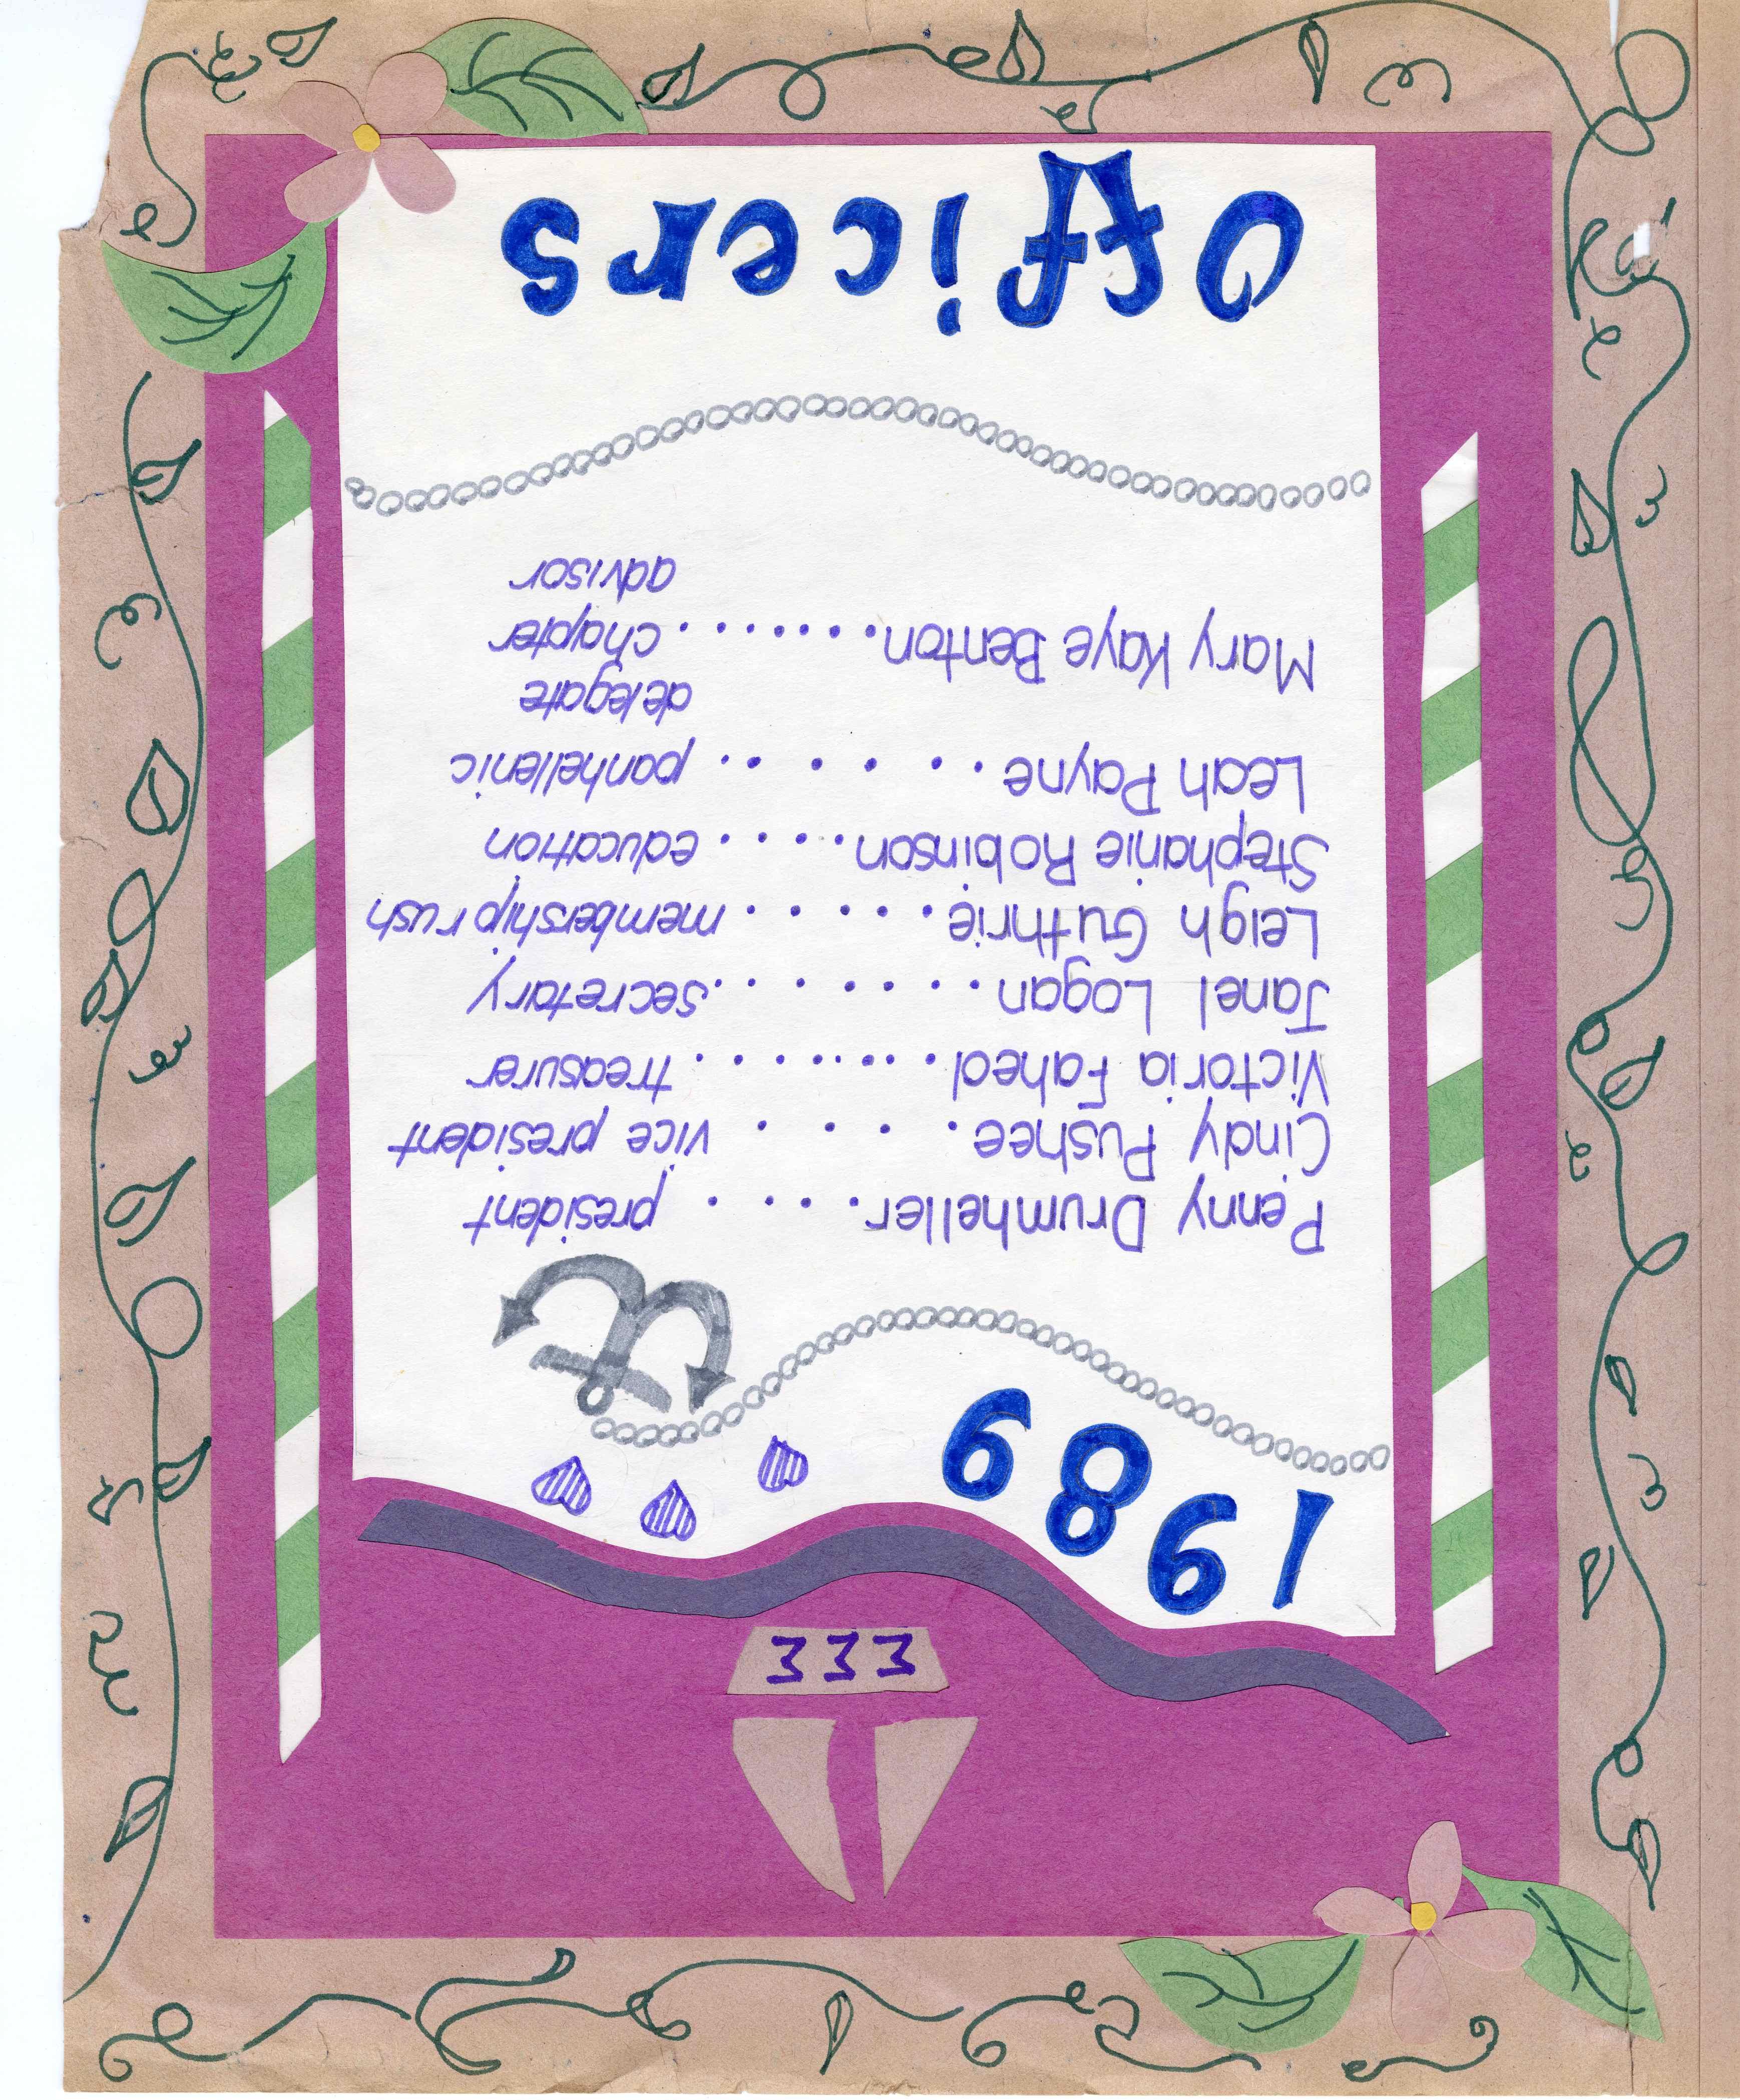 ΣΣΣ
1989
Penny Drumheller. . . . president
Cindy Pushee. . . . vice president
Victoria Fahed. . . . . . . . treasurer
Janel Logan . . . . . . . secretary
Leigh Guthrie. . . . . . membership rush
Stephanie Robinson. . . . . education
Leah Payne . . . . . . panhellenic
delegate
Mary Kaye Benton. . . . . . . . chapter
advisor
Officers